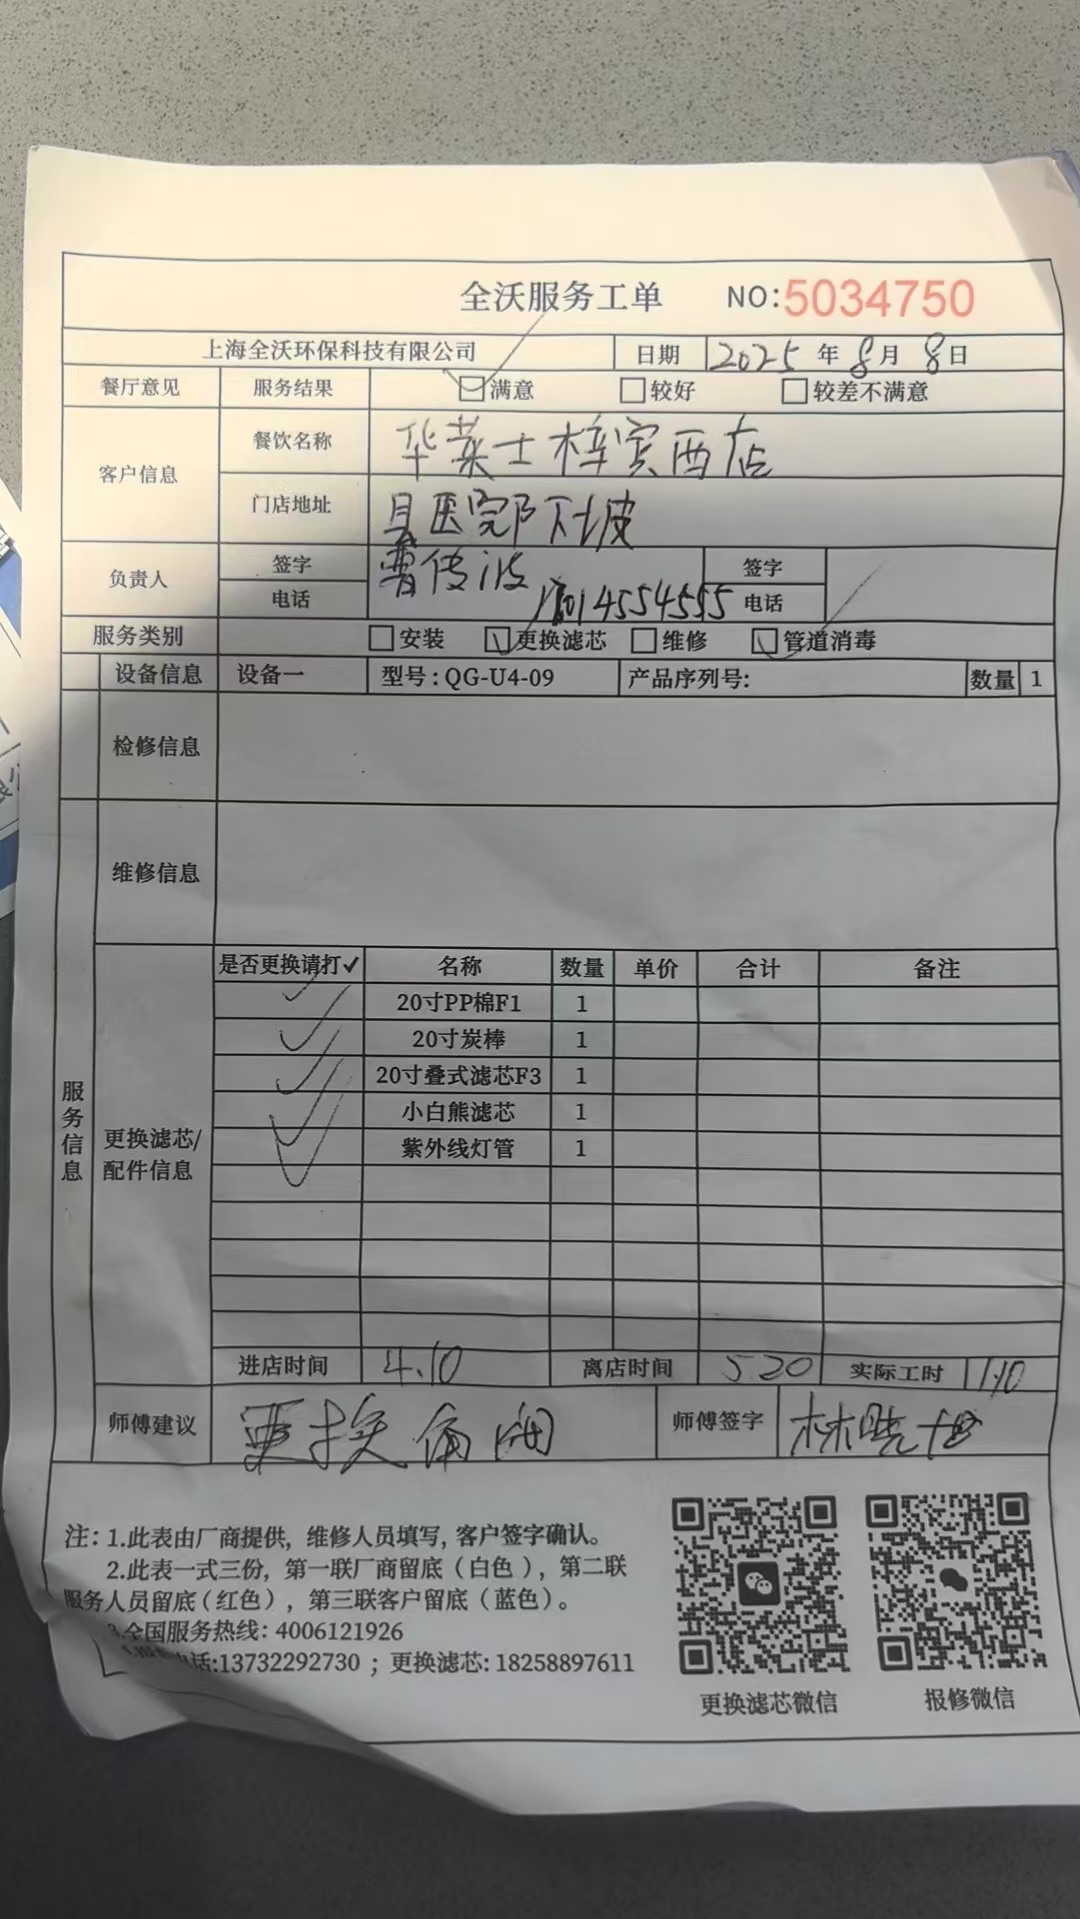 全沃服务工单 NO:5034750
上海全沃环保科技有限公司 日期 2025 年 8 月 8 日
餐厅意见 服务结果 满意 较好 较差不满意
客户信息 餐饮名称 华莱士梓宾西店
门店地址 县医院下坡
负责人 签字 曹传波 签字
电话 4554555 电话
服务类别 安装 更换滤芯 维修 管道消毒
设备信息 设备一 型号:QG-U4-09 产品序列号: 数量 1
检修信息
维修信息
服务信息
更换滤芯/配件信息
是否更换请打✓ 名称 数量 单价 合计 备注
✓ 20寸PP棉F1 1
✓ 20寸炭棒 1
✓ 20寸叠式滤芯F3 1
✓ 小白熊滤芯 1
✓ 紫外线灯管 1
进店时间 4.10 离店时间 5.20 实际工时 1.10
师傅建议 要换 师傅签字 林晓
注: 1.此表由厂商提供, 维修人员填写, 客户签字确认。
2.此表一式三份, 第一联厂商留底 (白色), 第二联
服务人员留底 (红色), 第三联客户留底 (蓝色)。
3.全国服务热线: 4006121926
话:13732292730 ; 更换滤芯: 18258897611
更换滤芯微信 报修微信